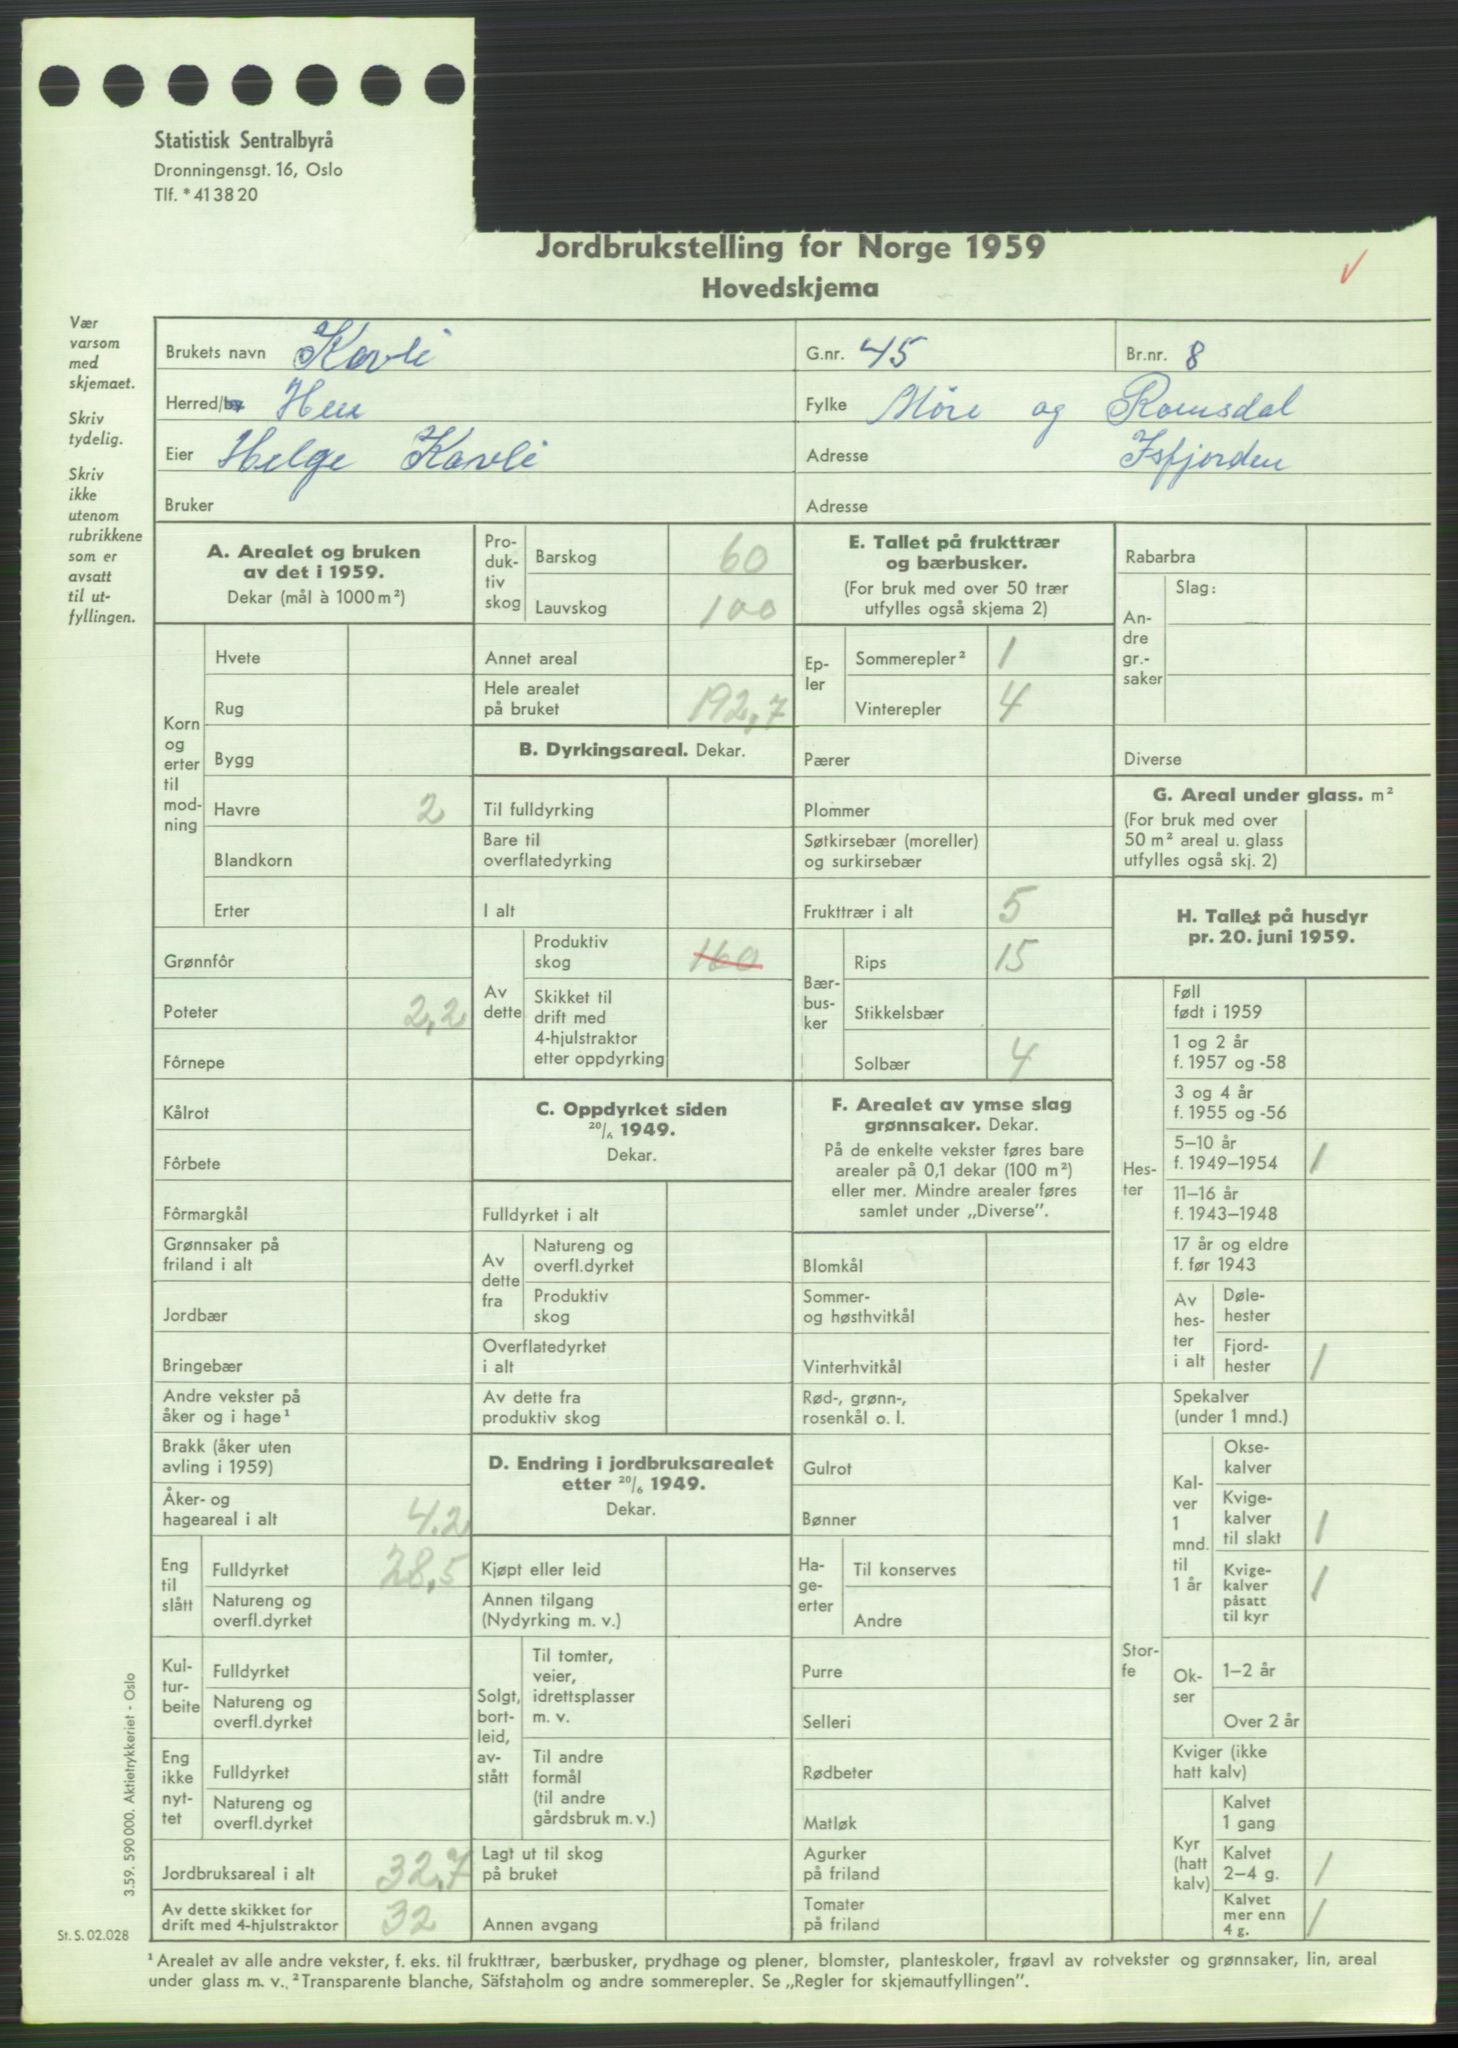 Statistisk Sentralbyrå
Dronningensgt. 16, Oslo
Tlf. * 41 38 20
Jordbrukstelling for Norge 1959
Hovedskjema
Vær
varsom
med
skjemaet.
Skriv
tydelig.
Skriv
ikke
utenom
rubrikkene
som er
avsatt
til ut-
fyllingen.
Brukets navn Kavli G.nr. 45 Br.nr. 8
Herred/by Hen Fylke Møre og Romsdal
Eier Helge Kavli Adresse Isfjorden
Bruker Adresse
A. Arealet og bruken
av det i 1959.
Dekar (mål à 1000 m²)
Korn
og
erter
til
mod-
ning
Hvete
Rug
Bygg
Havre 2
Blandkorn
Erter
Grønnfôr
Poteter 2,2
Fôrnepe
Kålrot
Fôrbete
Fôrmargkål
Grønnsaker på
friland i alt
Jordbær
Bringebær
Andre vekster på
åker og i hage¹
Brakk (åker uten
avling i 1959)
Åker- og
hageareal i alt 4.2
Eng
til
slått
Fulldyrket 28,5
Natureng og
overfl.dyrket
Kul-
tur-
beite
Fulldyrket
Natureng og
overfl.dyrket
Eng
ikke
nyt-
tet
Fulldyrket
Natureng og
overfl.dyrket
Jordbruksareal i alt 32,7
Av dette skikket for
drift med 4-hjulstraktor 32
Pro-
duk-
tiv
skog
Barskog 60
Lauvskog 100
Annet areal
Hele arealet
på bruket 192,7
B. Dyrkingsareal. Dekar.
Til fulldyrking
Bare til
overflatedyrking
I alt
Av
dette
Produktiv
skog 160
Skikket til
drift med
4-hjulstraktor
etter oppdyrking
C. Oppdyrket siden
20/6 1949.
Dekar.
Fulldyrket i alt
Av
dette
fra
Natureng og
overfl.dyrket
Produktiv
skog
Overflatedyrket
i alt
Av dette fra
produktiv skog
D. Endring i jordbruksarealet
etter 20/6 1949.
Dekar.
Kjøpt eller leid
Annen tilgang
(Nydyrking m. v.)
Solgt,
bort-
leid,
av-
stått
Til tomter,
veier,
idrettsplasser
m. v.
Til andre
formål
(til andre
gårdsbruk m. v.)
Lagt ut til skog
på bruket
Annen avgang
E. Tallet på frukttrær
og bærbusker.
(For bruk med over 50 trær
utfylles også skjema 2)
Ep-
ler
Sommerepler² 1
Vinterepler 4
Pærer
Plommer
Søtkirsebær (moreller)
og surkirsebær
Frukttrær i alt 5
Bær-
bus-
ker
Rips 15
Stikkelsbær
Solbær 4
F. Arealet av ymse slag
grønnsaker. Dekar.
På de enkelte vekster føres bare
arealer på 0,1 dekar (100 m²)
eller mer. Mindre arealer føres
samlet under „Diverse”.
Blomkål
Sommer-
og høsthvitkål
Vinterhvitkål
Rød-, grønn-,
rosenkål o. l.
Gulrot
Bønner
Ha-
ge-
erter
Til konserves
Andre
Purre
Selleri
Rødbeter
Matløk
Agurker
på friland
Tomater
på friland
Rabarbra
An-
dre
gr.-
saker
Slag:
Diverse
G. Areal under glass. m²
(For bruk med over
50 m² areal u. glass
utfylles også skj. 2)
H. Tallet på husdyr
pr. 20. juni 1959.
Hes-
ter
Føll
født i 1959
1 og 2 år
f. 1957 og -58
3 og 4 år
f. 1955 og -56
5–10 år
f. 1949–1954 1
11–16 år
f. 1943–1948
17 år og eldre
f. før 1943
Av
hes-
ter
i alt
Døle-
hester
Fjord-
hester 1
Stor-
fe
Spekalver
(under 1 mnd.)
Kal-
ver
1
mnd.
til
1 år
Okse-
kalver
Kvige-
kalver
til slakt 1
Kvige-
kalver
påsatt
til kyr 1
Ok-
ser
1–2 år
Over 2 år
Kviger (ikke
hatt kalv)
Kyr
(hatt
kalv)
Kalvet
1 gang
Kalvet
2–4 g. 1
Kalvet
mer enn
4 g. 1
3.59. 590 000. Aktietrykkeriet - Oslo
St. S. 02.028
¹ Arealet av alle andre vekster, f. eks. til frukttrær, bærbusker, prydhage og plener, blomster, planteskoler, frøavl av rotvekster og grønnsaker, lin, areal
under glass m. v.. ² Transparente blanche, Säfstaholm og andre sommerepler. Se „Regler for skjemautfyllingen”.